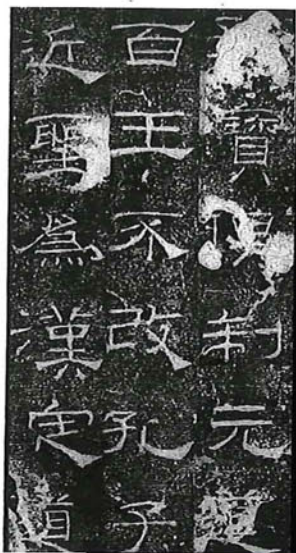 寶俱制元道
百王不改孔子
近聖為漢定道